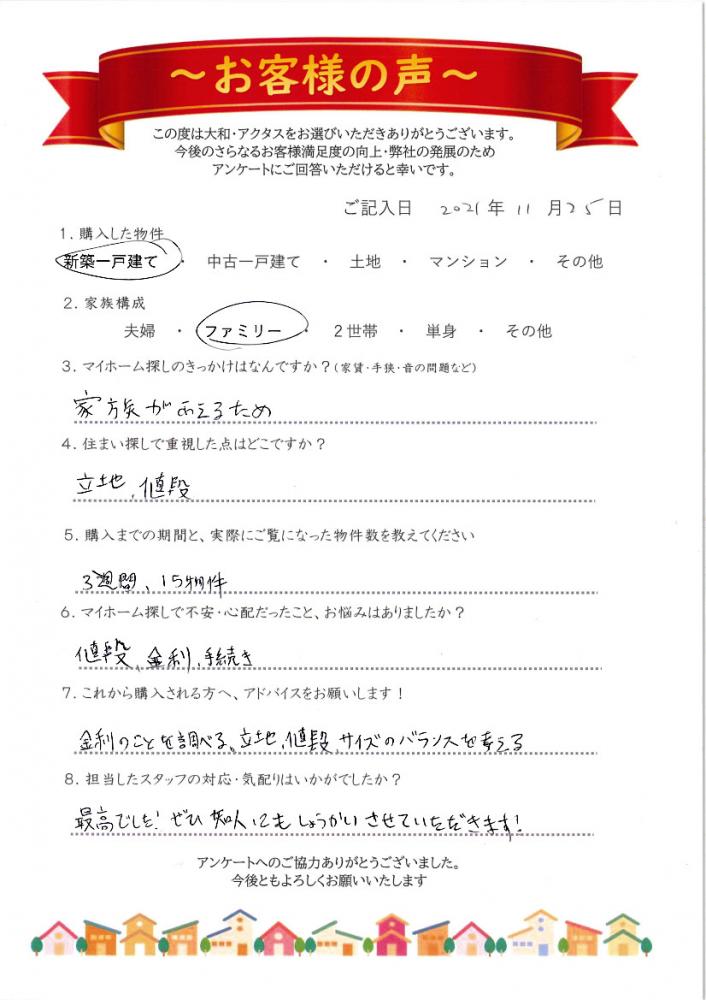 ～お客様の声～
この度は大和・アクタスをお選びいただきありがとうございます。
今後のさらなるお客様満足度の向上・弊社の発展のため
アンケートにご回答いただけると幸いです。
ご記入日 2021年 11 月 25 日
1. 購入した物件
新築一戸建て ・ 中古一戸建て ・ 土地 ・ マンション ・ その他
2. 家族構成
夫婦 ・ ファミリー ・ 2世帯 ・ 単身 ・ その他
3. マイホーム探しのきっかけはなんですか？(家賃・手狭・音の問題など)
家族がふえるため
4. 住まい探しで重視した点はどこですか？
立地、値段
5. 購入までの期間と、実際にご覧になった物件数を教えてください
3週間、15物件
6. マイホーム探しで不安・心配だったこと、お悩みはありましたか？
値段、金利、手続き
7. これから購入される方へ、アドバイスをお願いします！
金利のことを調べる。立地、値段、サイズのバランスを考える
8. 担当したスタッフの対応・気配りはいかがでしたか？
最高でした！ぜひ知人にもしょうかいさせていただきます！
アンケートへのご協力ありがとうございました。
今後ともよろしくお願いいたします